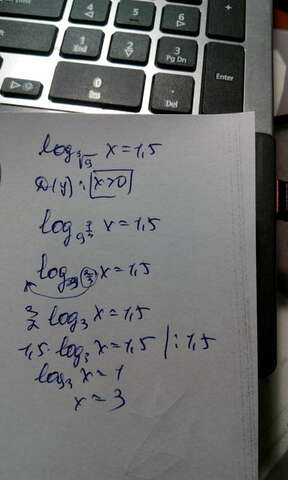 4
5
6
+
1
End
2
3
Pg Dn
Enter
0
Del
log_∛9 x = 1,5
D(y): x>0
log_9^{1/3} x = 1,5
log_3^{2/3} x = 1,5
3/2 log_3 x = 1,5
1,5 · log_3 x = 1,5 | : 1,5
log_3 x = 1
x = 3